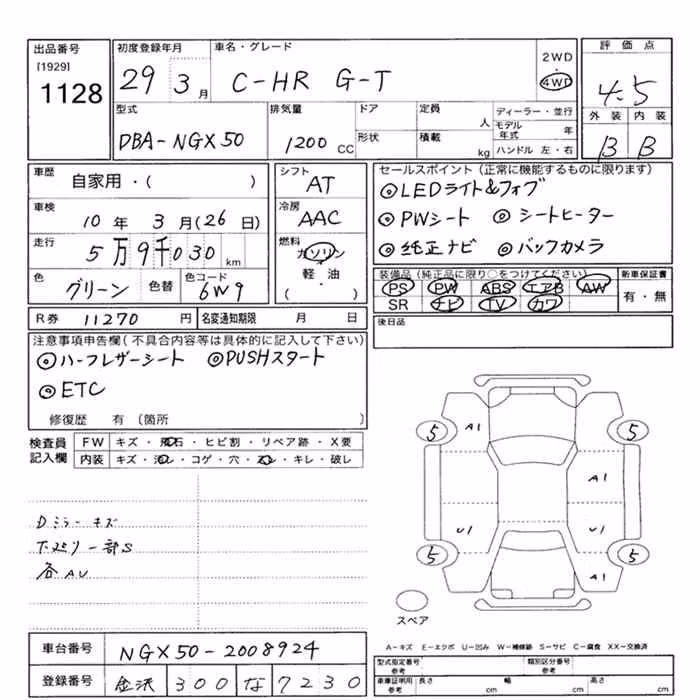 出品番号
[1929]
1128
初度登録年月
29 3月
車名・グレード
C-HR G-T
2WD
4WD
評価点
4.5
外装 内装
B B
型式
DBA-NGX50
排気量
1200 CC
ドア
形状
定員
人
積載
kg
ディーラー・並行
モデル年式 年
ハンドル 左・右
車歴
自家用・( )
車検
10年 3月(26日)
走行
5万9千030 km
色
グリーン 色替
色コード
6W9
シフト
AT
冷房
AAC
燃料
ガソリン
軽・油
( ・ )
セールスポイント(正常に機能するものに限ります)
◎LEDライト&フォブ
◎PWシート ◎シートヒーター
◎純正ナビ ◎バックカメラ
装備品(純正品に限り○をつけてください)
PS PW ABS エアB AW
SR ナビ TV カワ
新車保証書
有・無
後日品
R券 11270 円
名変通知期限 月 日
注意事項申告欄(不具合内容等は具体的に記入して下さい)
◎ハーフレザーシート ◎PUSHスタート
◎ETC
修復歴 有 (箇所 )
検査員記入欄
FW キズ・飛石・ヒビ割・リペア跡・X要
内装 キズ・汚レ・コゲ・穴・スレ・キレ・破レ
Dミラーキズ
下廻り一部S
各AU
5 A1 5
A1
U1 U1
5 A1 5
スペア
A-キズ E-エクボ U-凹み W-補修跡 S-サビ C-腐食 XX-交換済
車台番号 NGX50-2008924
登録番号 金沢 300 な 7230
型式指定番号 参考
類別区分番号 参考
車庫証明用 参考
長さ cm 幅 cm 高さ cm